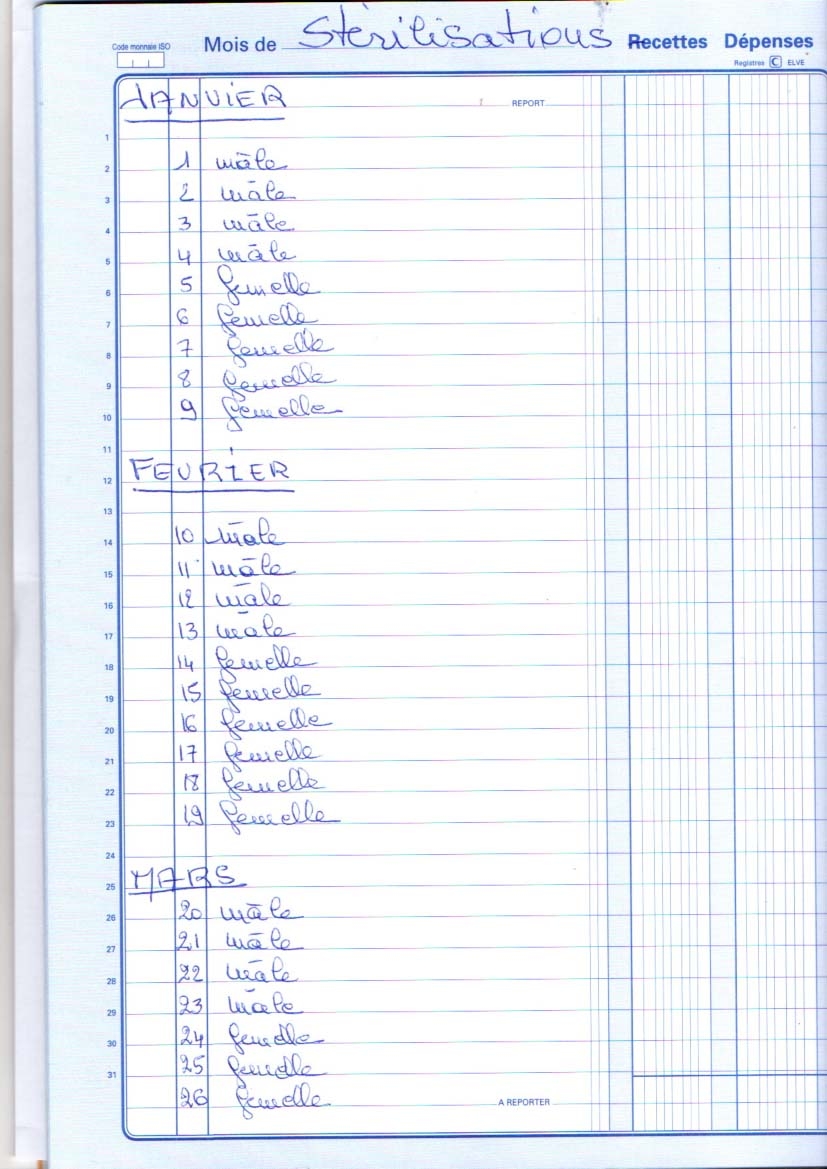 Code monnaie ISO
Mois de Stérilisations Recettes Dépenses
Registres C ELVE
JANVIER
REPORT
1
2 1 mâle
3 2 mâle
4 3 mâle
5 4 mâle
6 5 femelle
7 6 femelle
8 7 femelle
9 8 femelle
10 9 femelle
11
12 FEVRIER
13
14 10 mâle
15 11 mâle
16 12 mâle
17 13 mâle
18 14 femelle
19 15 femelle
20 16 femelle
21 17 femelle
22 18 femelle
23 19 femelle
24
25 MARS
26 20 mâle
27 21 mâle
28 22 mâle
29 23 mâle
30 24 femelle
31 25 femelle
26 femelle A REPORTER